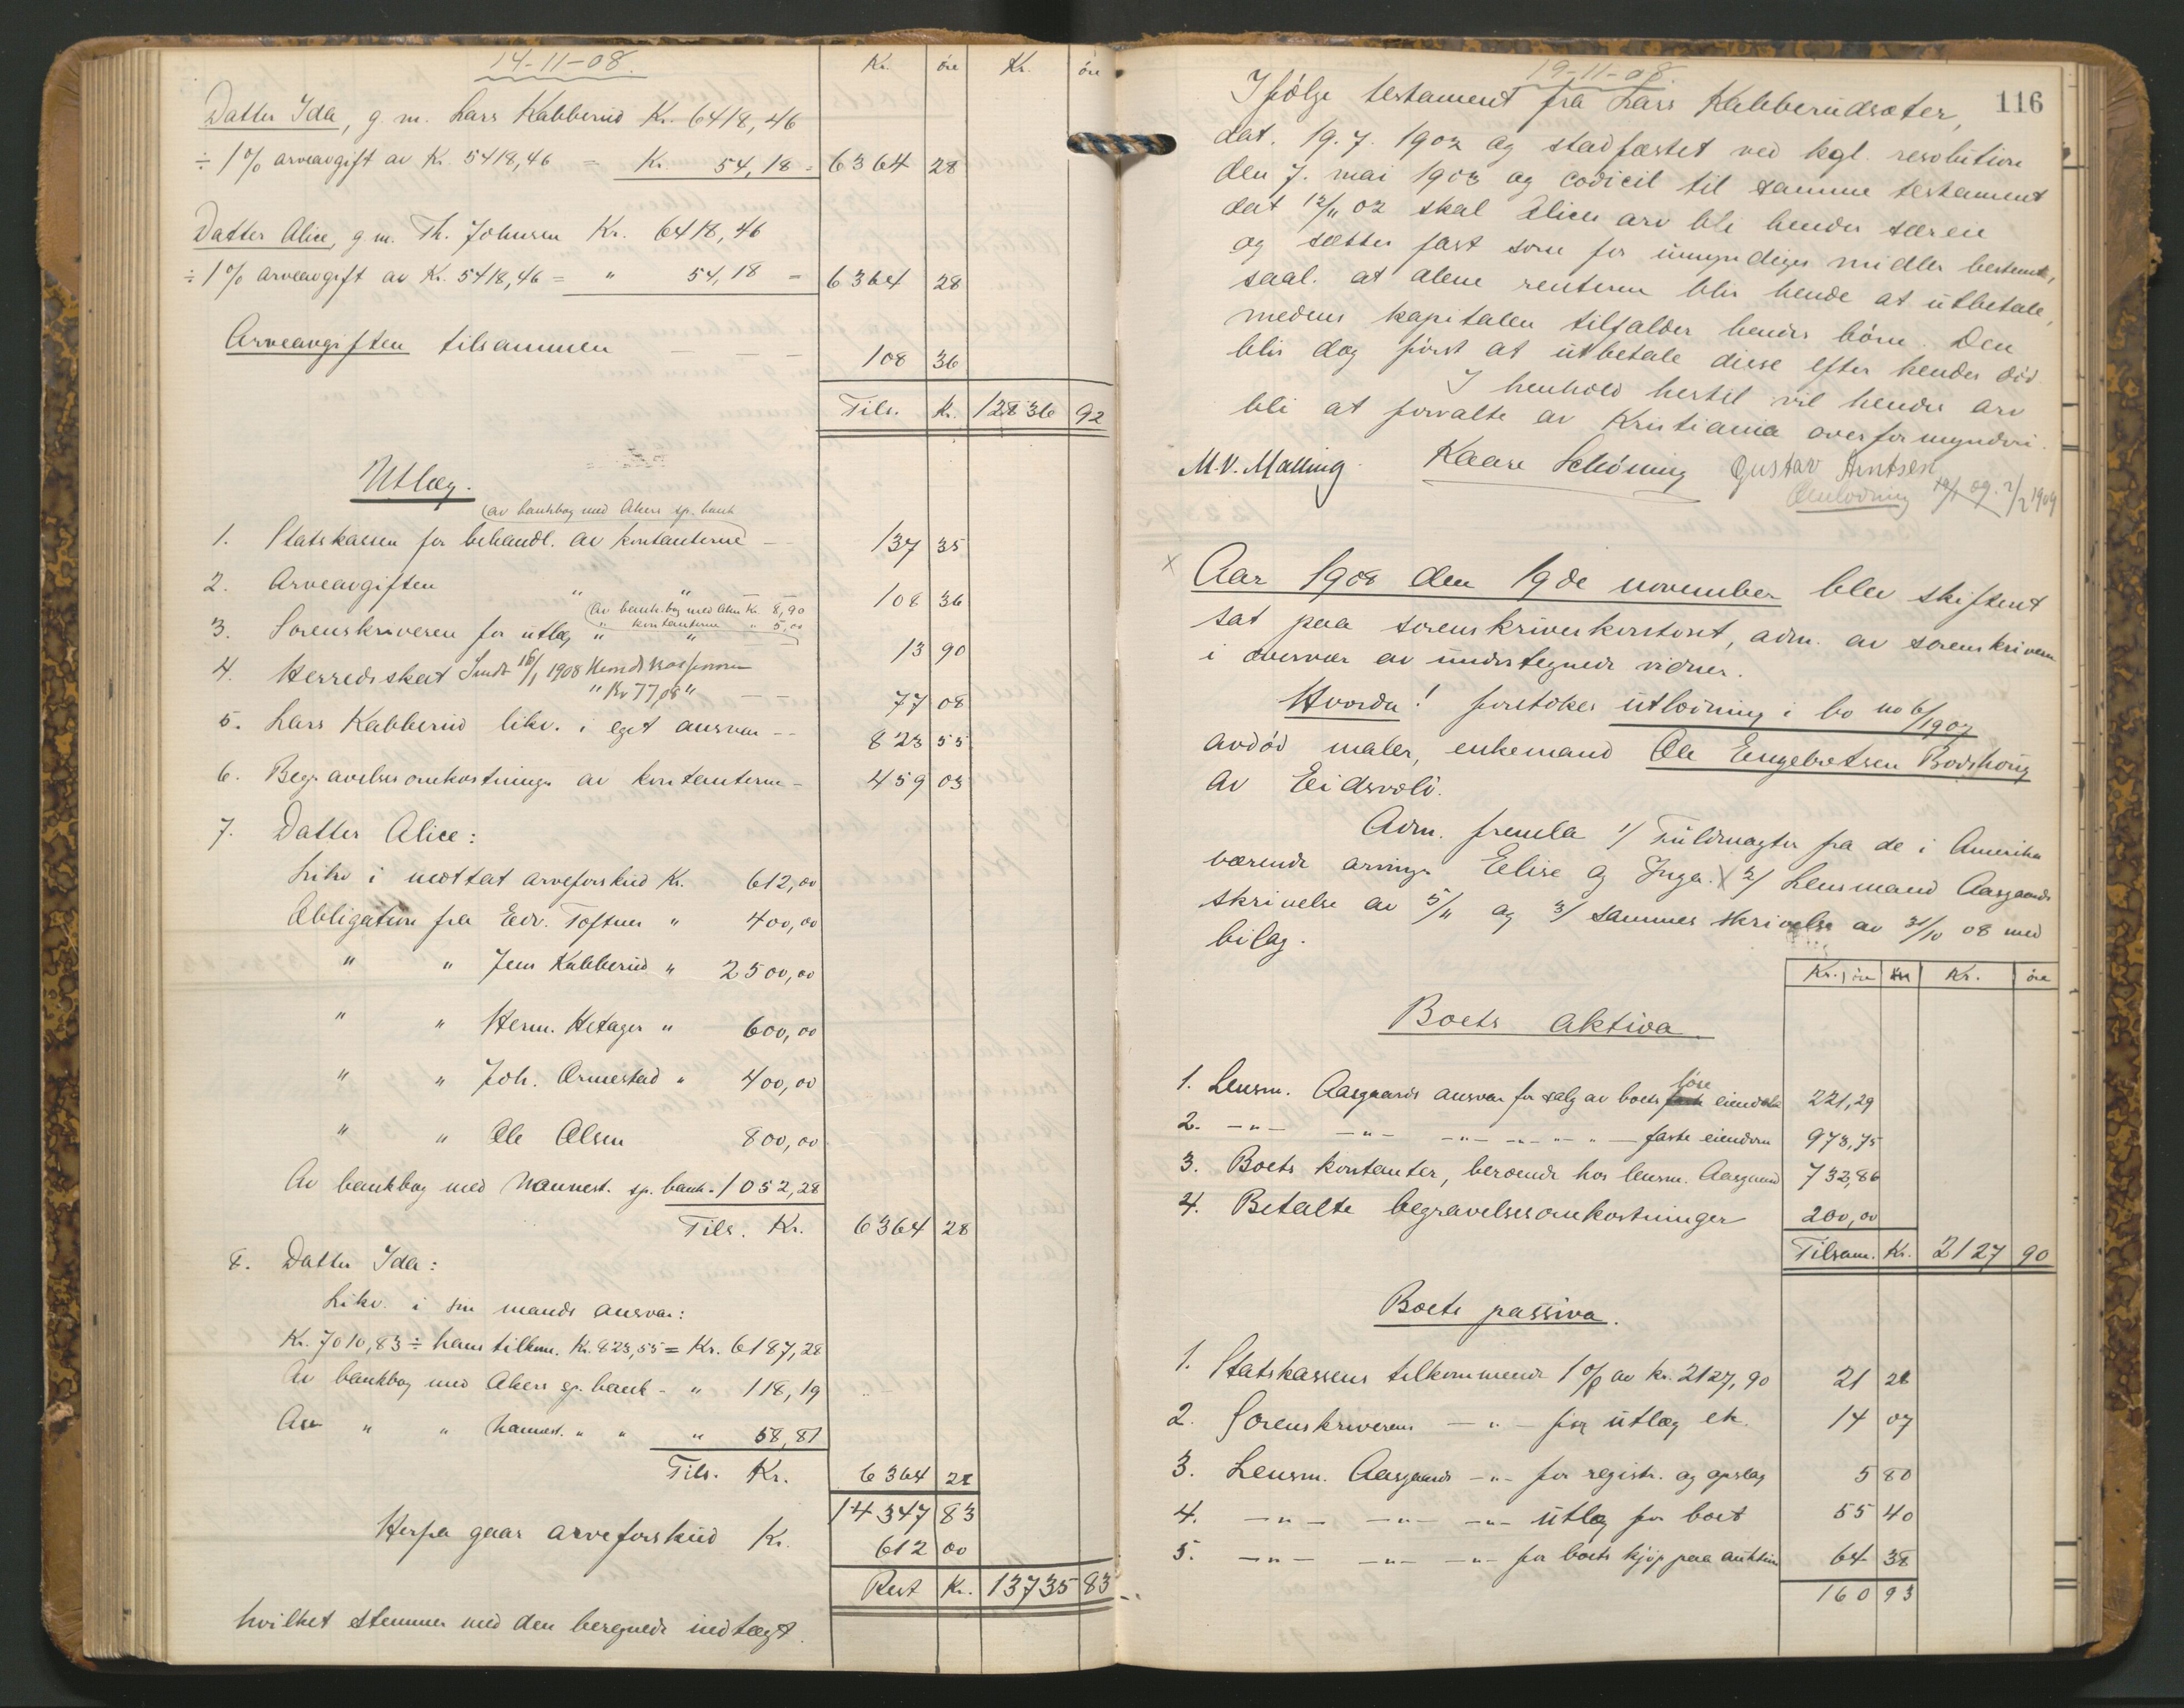 14-11-08.
Kr. øre Kr. øre
Datter Ida, g. m. Lars Kabberud Kr. 6418,46
÷ 1% arveavgift av Kr. 5418,46 = Kr. 54,18 = 6364 28
Datter Alice, g. m. Th. Johnsen Kr. 6418,46
÷ 1% arveavgift av Kr. 5418,46 = " 54,18 = 6364 28
Arveavgiften tilsammen — — — 108 36
Tils. Kr. 12836 92
Utlæg.
(av bankbog med Akers sp. bank
1. Statskassen for behandl. av kontanterne — 137 35
2. Arveavgiften " " 108 36
(av bank.bog med Akers Kr. 8,90
" kontanterne " 5,00
3. Sorenskriveren for utlæg " " 13 90
4. Herredsskat Inds 16/1 1908
" Kr 77,08 " — — 77 08
5. Lars Kabberud likv. i eget ansvar -- 823 55
6. Begravelsesomkostninger av kontanterne - 459 03
7. Datter Alice:
Likv i mottat arveforskud Kr. 612,00
Obligation fra Edv. Toftner " 400,00
" " Jens Kabberud " 2500,00
" " Herm. Hetager " 600,00
" " Joh. Ormestad " 400,00
" " Ole Olsen 800,00
Av bankbog med Nannest. sp. bank - 1052,28
Tils. Kr. 6364 28
8. Datter Ida:
Likv. i sin mands ansvar:
Kr. 7010,83 ÷ hans tilkom. Kr. 823,55 = Kr. 6187,28
Av bankbog med Akers sp. bank - " 118,19
Av " " Nannest. " " " 58,81
Tils. Kr. 6364 28
14347 83
Herfra gaar arveforskud Kr. 612 00
Rest Kr. 13735 83
hvilket stemmer med den beregnede indtægt.
19-11-08.
116
Ifølge testament fra Lars Kabberudsæter,
dat. 19. 7. 1902 og stadfæstet ved kgl. resolution
den 7. mai 1903 og codicil til samme testament
dat 12/11 02 skal Alices arv bli hendes særeie
og sættes fast som for umyndiges midler bestemt,
saal. at alene renterne blir hende at utbetale,
medens kapitalen tilfalder hendes børn. Den
blir dog først at utbetale disse efter hendes død
I henhold hertil vil hendes arv
bli at forvalte av Kristiania overformynderi.
M. V. Malling. Kaare Schöning Gustav Arntsen
Omlodning 12/1 09. 2/2 1909
x Aar 1908 den 19de november blev skifteret
sat paa sorenskriverkontoret, adm. av sorenskriveren
i overvær av undertegnede vidner.
Hvorda! foretokes utlodning i bo no 6/1907
avdød maler, enkemand Ole Engebretsen Bodshaug
av Eidsvold.
Adm. fremla 1/ Fuldmagter fra de i Amerika
værende arvinger Elise og Inga. x 2/ Lensmand Aasgaards
skrivelse av 5/11 og 3/ sammes skrivelse av 31/10 08 med
bilag.
Kr. øre Kr. øre
Boets aktiva.
1. Lensm. Aasgaards ansvar for salg av boets løse eiendele 221,29
2. -"- -"- -"- -"- -"- " — faste eiendom 973,75
3. Boets kontanter, beroende hos lensm. Aasgaard 732,86
4. Betalte begravelsesomkostninger 200,00
Tilsam. Kr. 2127 90
Boets passiva.
1. Statskassens tilkommende 1% av kr. 2127,90 21 28
2. Sorenskriverens — " — for utlæg etc. 14 07
3. Lensm. Aasgaards -"- for registr. og opslag 5 80
4. -"- -"- -"- utlæg for boet 55 40
5. -"- -"- -"- for boets kjøp paa auktion 64 38
160 93